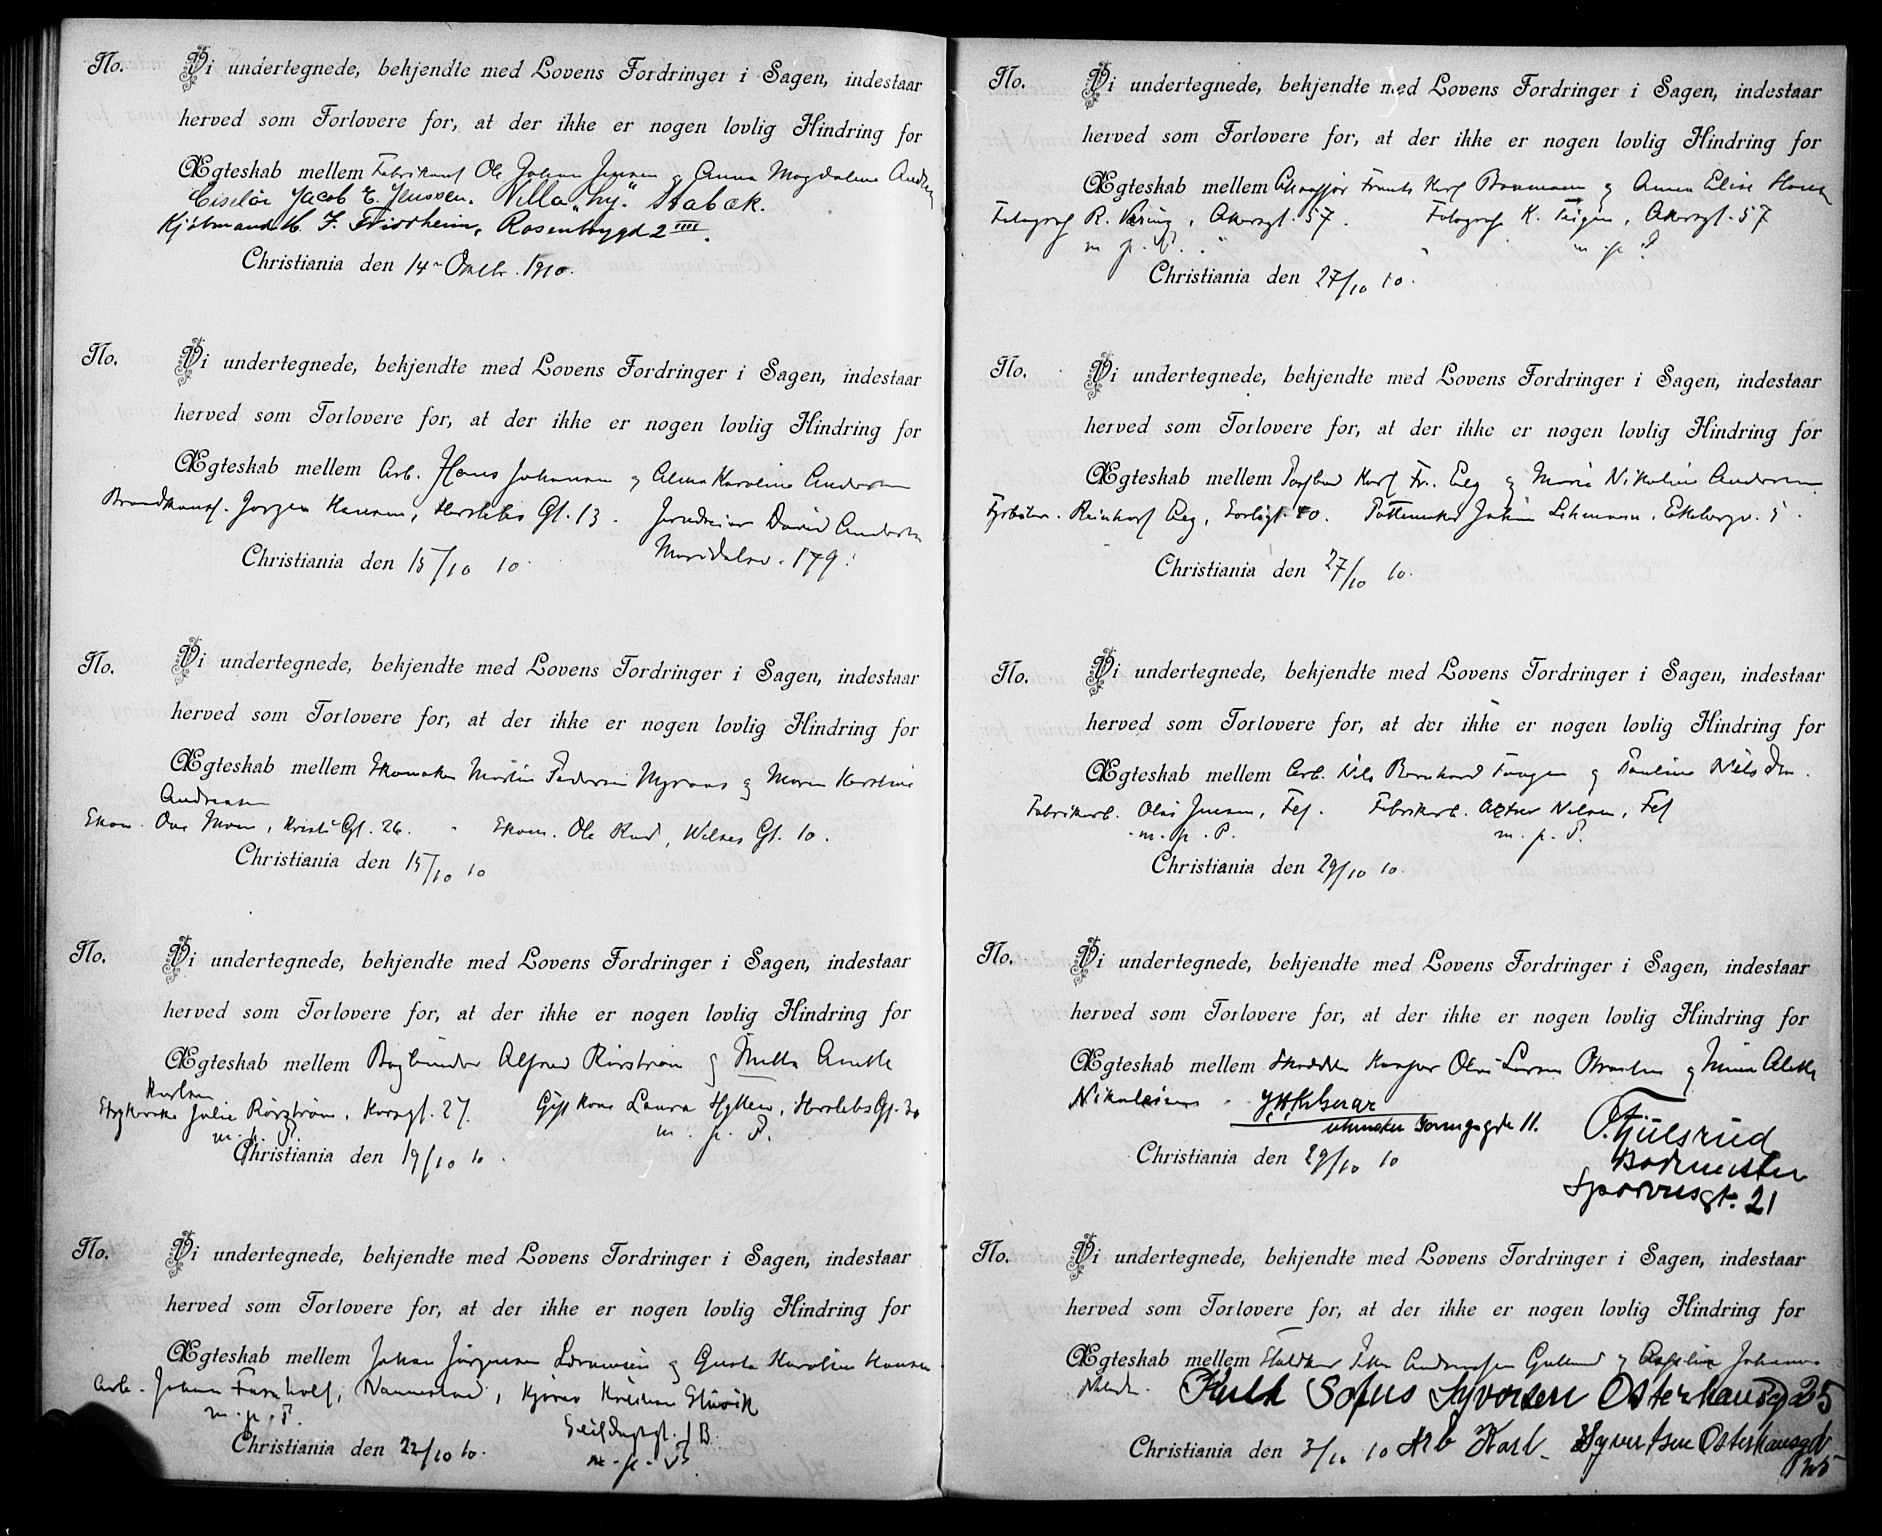 No. Vi undertegnede, bekjendte med Lovens Fordringer i Sagen, indestaar
herved som Forlovere for, at der ikke er nogen lovlig Hindring for
Ægteskab mellem Fabrikarb Ole Johan Jensen og Anna Magdalena
Ciselör Jacob E. Jenssen. Villa "Ly". Stabæk.
Kjöbmand
Christiania den 14 Oktbr. 1910.
No. Vi undertegnede, bekjendte med Lovens Fordringer i Sagen, indestaar
herved som Forlovere for, at der ikke er nogen lovlig Hindring for
Ægteskab mellem Arb. Hans Johansen og Alma Karoline Andersen
Brandkonst. Jørgen Hansen, Herslebs Gt. 13. Jerndreier David Andersen
Maridalsv. 179.
Christiania den 15/10 10.
No. Vi undertegnede, bekjendte med Lovens Fordringer i Sagen, indestaar
herved som Forlovere for, at der ikke er nogen lovlig Hindring for
Ægteskab mellem Skomaker Martin Pedersen Myraas og Maren Kerstine
Andreasen
Skom. Ove Moen, Kristi Gt. 26. Skom. Ole Rud, Wilses Gt. 10.
Christiania den 15/10 10
No. Vi undertegnede, bekjendte med Lovens Fordringer i Sagen, indestaar
herved som Forlovere for, at der ikke er nogen lovlig Hindring for
Ægteskab mellem Bogbinder Alfred Rörström og
Karlsen
Strykerske Julie Rörström, Korsgt. 27. Gift Kone Laura Hytten, Herslebs Gt.
m. p. P. m. p. P.
Christiania den 19/10 10.
No. Vi undertegnede, bekjendte med Lovens Fordringer i Sagen, indestaar
herved som Forlovere for, at der ikke er nogen lovlig Hindring for
Ægteskab mellem Johan Jörgensen og Gusta Karoline Hansen
Arb. Johan Furuholt, Nannestad, Kjörer Kristian
m. p. P. Seilduksgt. 1 B.
Christiania den 22/10 10. m. p. P.
No. Vi undertegnede, bekjendte med Lovens Fordringer i Sagen, indestaar
herved som Forlovere for, at der ikke er nogen lovlig Hindring for
Ægteskab mellem Chaufför Frants Karl Baumann og Anna Elise
Fotograf R. Væring, Akersgt. 57. Fotograf K. Teigen, Akersgt. 57
m. p. P. m. p. P.
Christiania den 27/10 10.
No. Vi undertegnede, bekjendte med Lovens Fordringer i Sagen, indestaar
herved som Forlovere for, at der ikke er nogen lovlig Hindring for
Ægteskab mellem Karl Fr. Eeg og Marie Nikoline Andersen
Fyrböter. Reinholf Eeg, Sorligt. 40. Pottemaker Johan Lehmann, Ekebergv. 5.
Christiania den 27/10 10.
No. Vi undertegnede, bekjendte med Lovens Fordringer i Sagen, indestaar
herved som Forlovere for, at der ikke er nogen lovlig Hindring for
Ægteskab mellem Arb. Nils Bernhard og Pauline Nilsdtr.
Fabrikarb. Olai Jensen, Fet. Fabrikarb. Nilsen, Fet
m. p. P. m. p. P.
Christiania den 29/10 10.
No. Vi undertegnede, bekjendte med Lovens Fordringer i Sagen, indestaar
herved som Forlovere for, at der ikke er nogen lovlig Hindring for
Ægteskab mellem Skrædder Kaspar Olai Larsen og Alette
Nikolaisen.
urmaker 11. O. Fjulsrud
Christiania den 29/10 10 Bademester
Sporveisgt. 21
No. Vi undertegnede, bekjendte med Lovens Fordringer i Sagen, indestaar
herved som Forlovere for, at der ikke er nogen lovlig Hindring for
Ægteskab mellem Staldkar og Johanne
Nilsdtr. Sofus Syvertsen Osterhausg 25
Christiania den 3/10 10 Arb Karl Syvertsen Osterhausgd
25